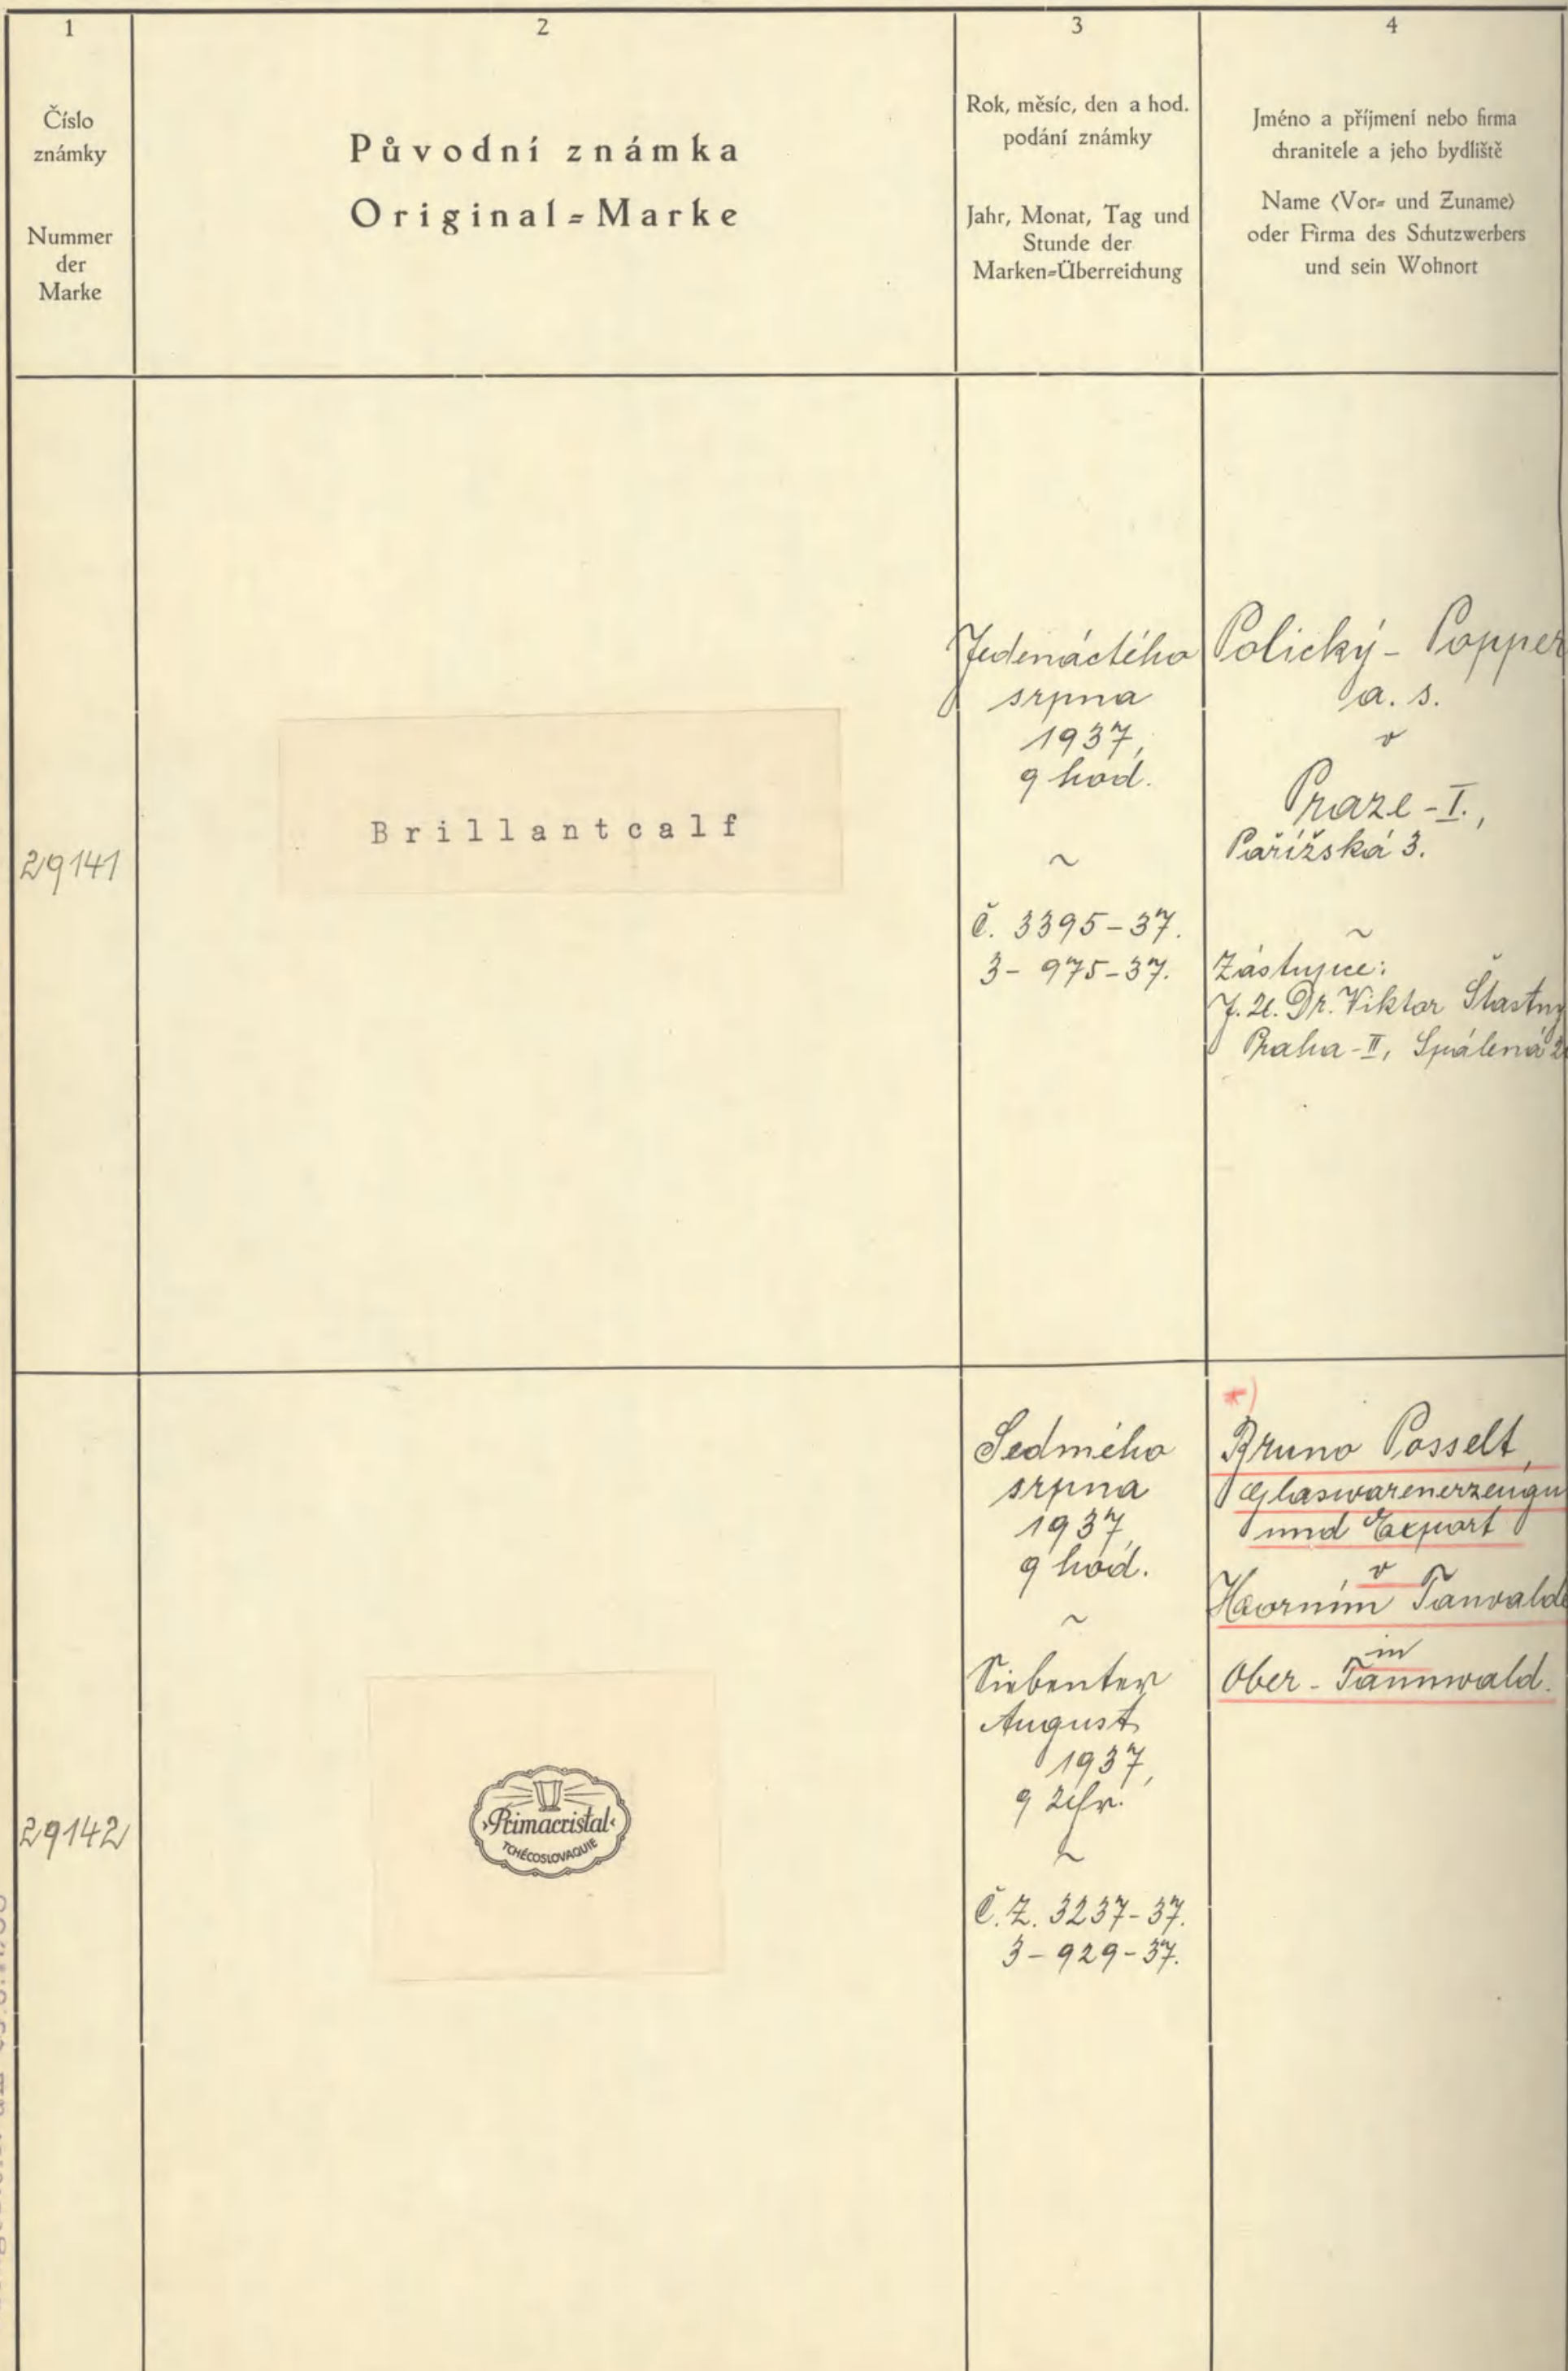 1
2
3
4
Číslo
známky
Nummer
der
Marke
Původní známka
Original=Marke
Rok, měsíc, den a hod.
podání známky
Jahr, Monat, Tag und
Stunde der
Marken=Überreichung
Jméno a příjmení nebo firma
chranitele a jeho bydliště
Name (Vor= und Zuname)
oder Firma des Schutzwerbers
und sein Wohnort
29141
Brillantcalf
Jedenáctého
srpna
1937,
9 hod.
~
č. 3395-37.
3- 975-37.
Polický - Popper
a. s.
v
Praze-I.,
Pařížská 3.
~
Zástupce:
J. U. Dr. Viktor Šťastný
Praha-II, Spálená
29142
Primacristal
TCHÉCOSLOVAQUIE
Sedmého
srpna
1937,
9 hod.
~
Siebenter
August
1937,
9 Uhr.
~
Č.Z. 3237-37.
3- 929-37.
*)
Bruno Posselt,
Glaswarenerzeugu
und Export
v
Hoorním Tanvalde
in
Ober-Tannwald.